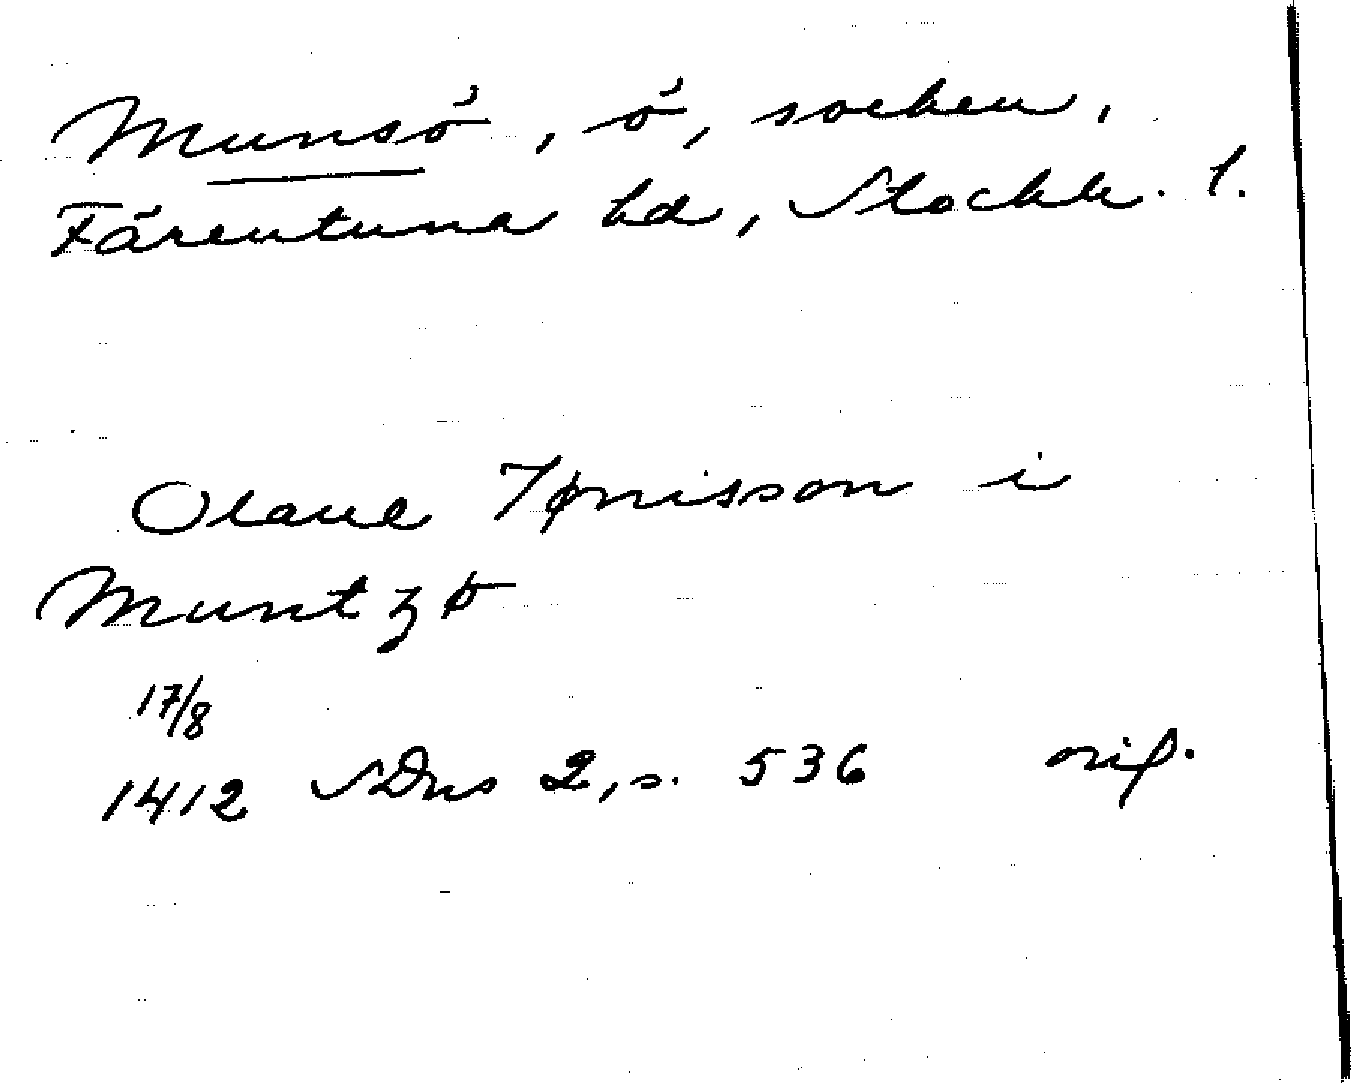 Munsö, ö, socken,
Färentuna hd, Stockh. l.
Olaue Tønisson i
Muntzø
17/8
1412 SDns 2, s. 536 orig.